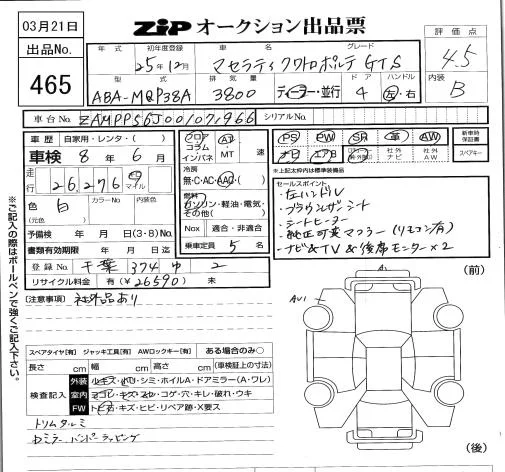 03月21日
ZIP オークション出品票
評価点
4.5
内装
B
出品No.
465
年式 初年度登録 車名 グレード
25年12月 マセラティクワトロポルテ GTS
型式 排気量 ドア ハンドル
ABA-MQP38A 3800 ディーラー・並行 4 左・右
車台No. ZAMPP56J001071966 シリアルNo.
車歴 自家用・レンタ・( )
車検 8年 6月
走行 26,276 km マイル
色 白 カラーNo. 内装色
(元色 )
予備検 年 月 日(3・8)No.
書類有効期限 年 月 日
登録No. 千葉 374 ゆ 2
リサイクル料金 有(¥26590) 未
フロア AT
コラム
インパネ MT 速
冷房
無・C・AC・AAC
燃料
ガソリン・軽油・電気・
その他( )
Nox 適合・非適合
乗車定員 5 名
PS PW SR 革 AW
ナビ エアB 社外ナビ 社外AW
新車時保証書
スペアキー
※上記太枠内は標準装備品
セールスポイント
・左ハンドル
・ブラウンレザーシート
・シートヒーター
・純正可変マフラー(リモコン有)
・ナビ&TV&後席モニター×2
[注意事項] 社外品あり
※ご記入の際はボールペンで強くご記入下さい。
スペアタイヤ[有] ジャッキ工具[有] AWロックキー[有] ある場合のみ○
長さ cm 幅 cm 高さ cm (車検証上の寸法)
検査記入
外装 ルキズ・凹・シミ・ホイルA・ドアミラー(A・ワレ)
室内 ヨゴレ・キズ・スレ・コゲ・穴・キレ・破れ・ウキ
FW トビ石・キズ・ヒビ・リペア跡・X要ス
トリムタルミ
(前)
A1
AU1
(後)